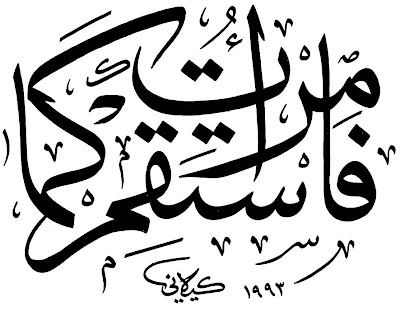 فاستقم كما أمرت
كيلاني ١٩٩٣